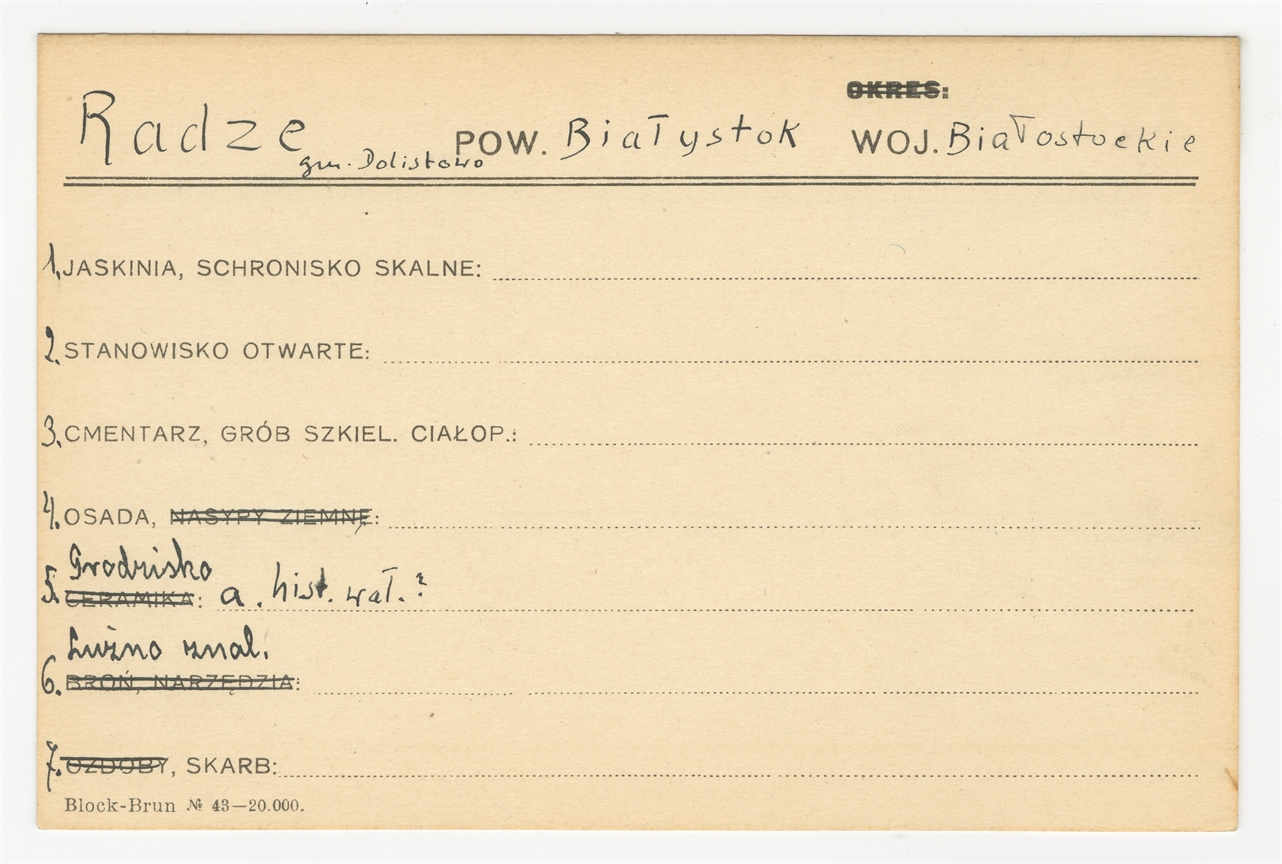 OKRES:
Radze POW. Białystok WOJ. Białostockie
gm. Dolistowo
1. JASKINIA, SCHRONISKO SKALNE:
2. STANOWISKO OTWARTE:
3. CMENTARZ, GRÓB SZKIEL. CIAŁOP.:
4. OSADA, NASYPY ZIEMNE:
Grodzisko
5. CERAMIKA: a. hist. wał.?
Luźno znal.
6. BROŃ, NARZĘDZIA:
7. OZDOBY, SKARB:
Block-Brun № 43—20.000.